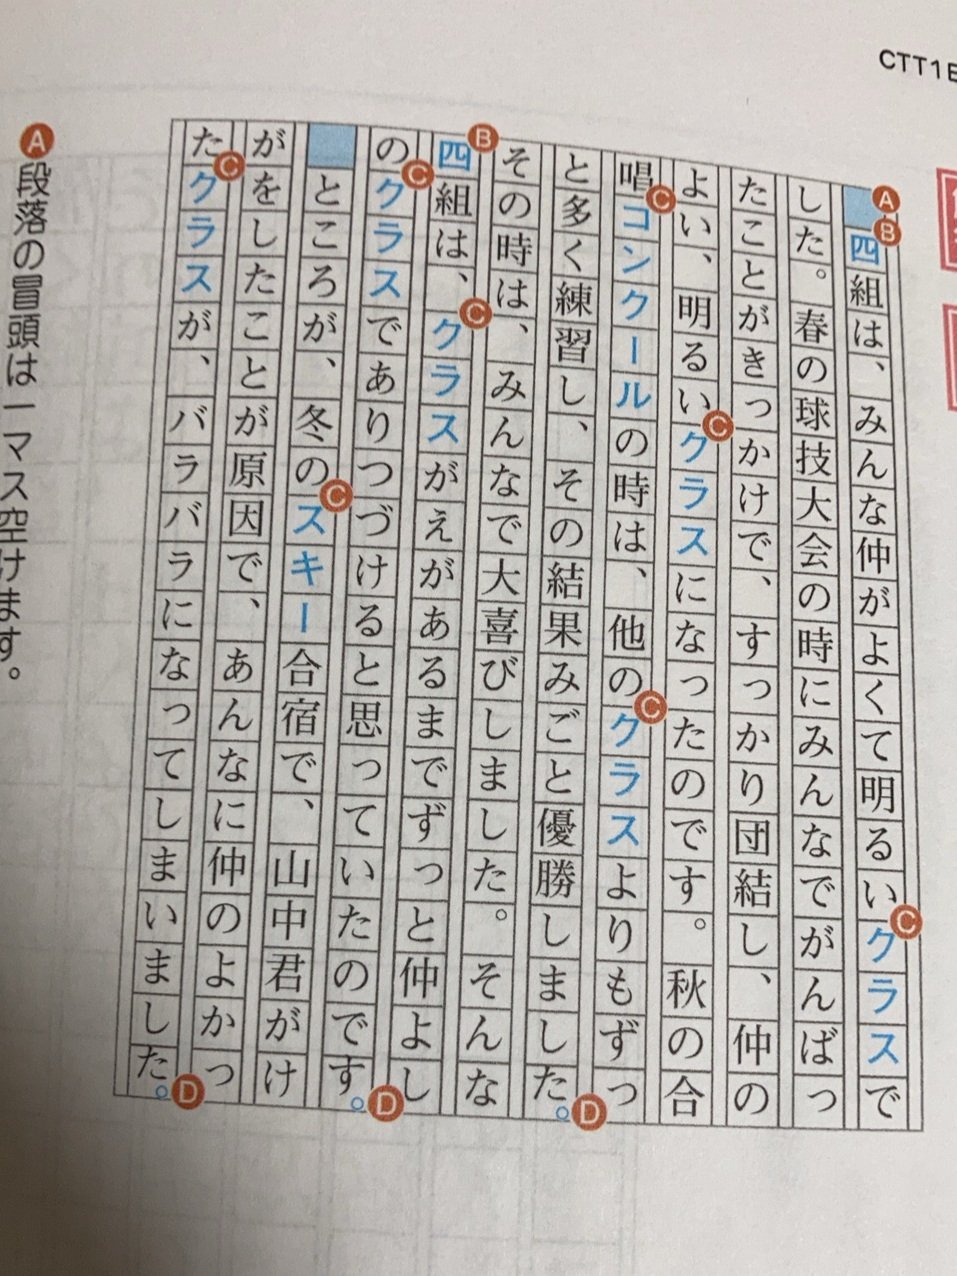 CTT1E
　四組は、みんな仲がよくて明るいクラスで
した。春の球技大会の時にみんなでがんばっ
たことがきっかけで、すっかり団結し、仲の
よい、明るいクラスになったのです。秋の合
唱コンクールの時は、他のクラスよりもずっ
と多く練習し、その結果みごと優勝しました。
その時は、みんなで大喜びしました。そんな
四組は、クラスがえがあるまでずっと仲よし
のクラスでありつづけると思っていたのです。
　ところが、冬のスキー合宿で、山中君がけ
がをしたことが原因で、あんなに仲のよかっ
たクラスが、バラバラになってしまいました。
A 段落の冒頭は一マス空けます。